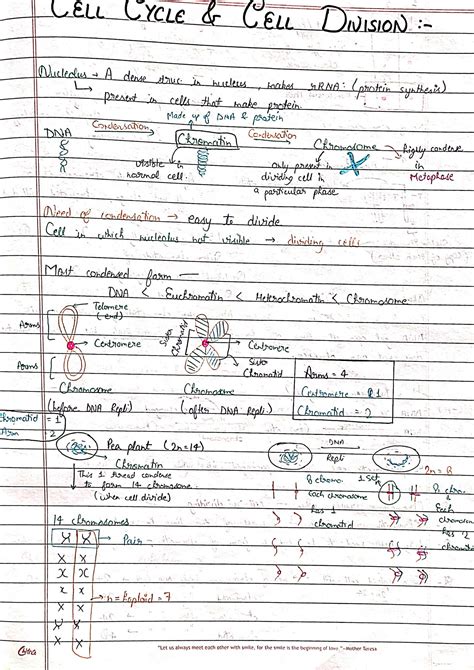 CELL CYCLE & CELL DIVISION :-
Nucleolus → A dense struc in nucleus, makes rRNA: (protein synthesis)
present in cells that make protein.
Made up of DNA & protein
DNA Condensation Chromatin Condensation Chromosome → highly condense in Metaphase
visible in normal cell.
only present in dividing cell in a particular phase
Need of condensation → easy to divide
Cell in which nucleolus not visible → dividing cells
Most condensed form —
DNA < Euchromatin < Heterochromatin < Chromosome
Telomere (end)
Arms
Centromere
Arms
Chromosome
(before DNA Repli)
Chromatid = 1
Arm 2
Sister Chromatid
Centromere
Sister Chromatid
Chromosome
(after DNA Repli.)
Arms = 4
Centromere = 1
Chromatid = 2
Pea plant (2n=14)
Chromatin
This 1 thread condense
to form 14 chromosome
(when cell divide)
DNA
Repli
2n = 8
8 chromo.
Each chromosome
has 1
chromatid
8 chromo
Each
chromosome
has 2
chromatid
14 chromosomes
X X → Pair
X X
X X
x x
X X
X X
X X
n = haploid = 7
"Let us always meet each other with smile, for the smile is the beginning of love." -Mother Teresa